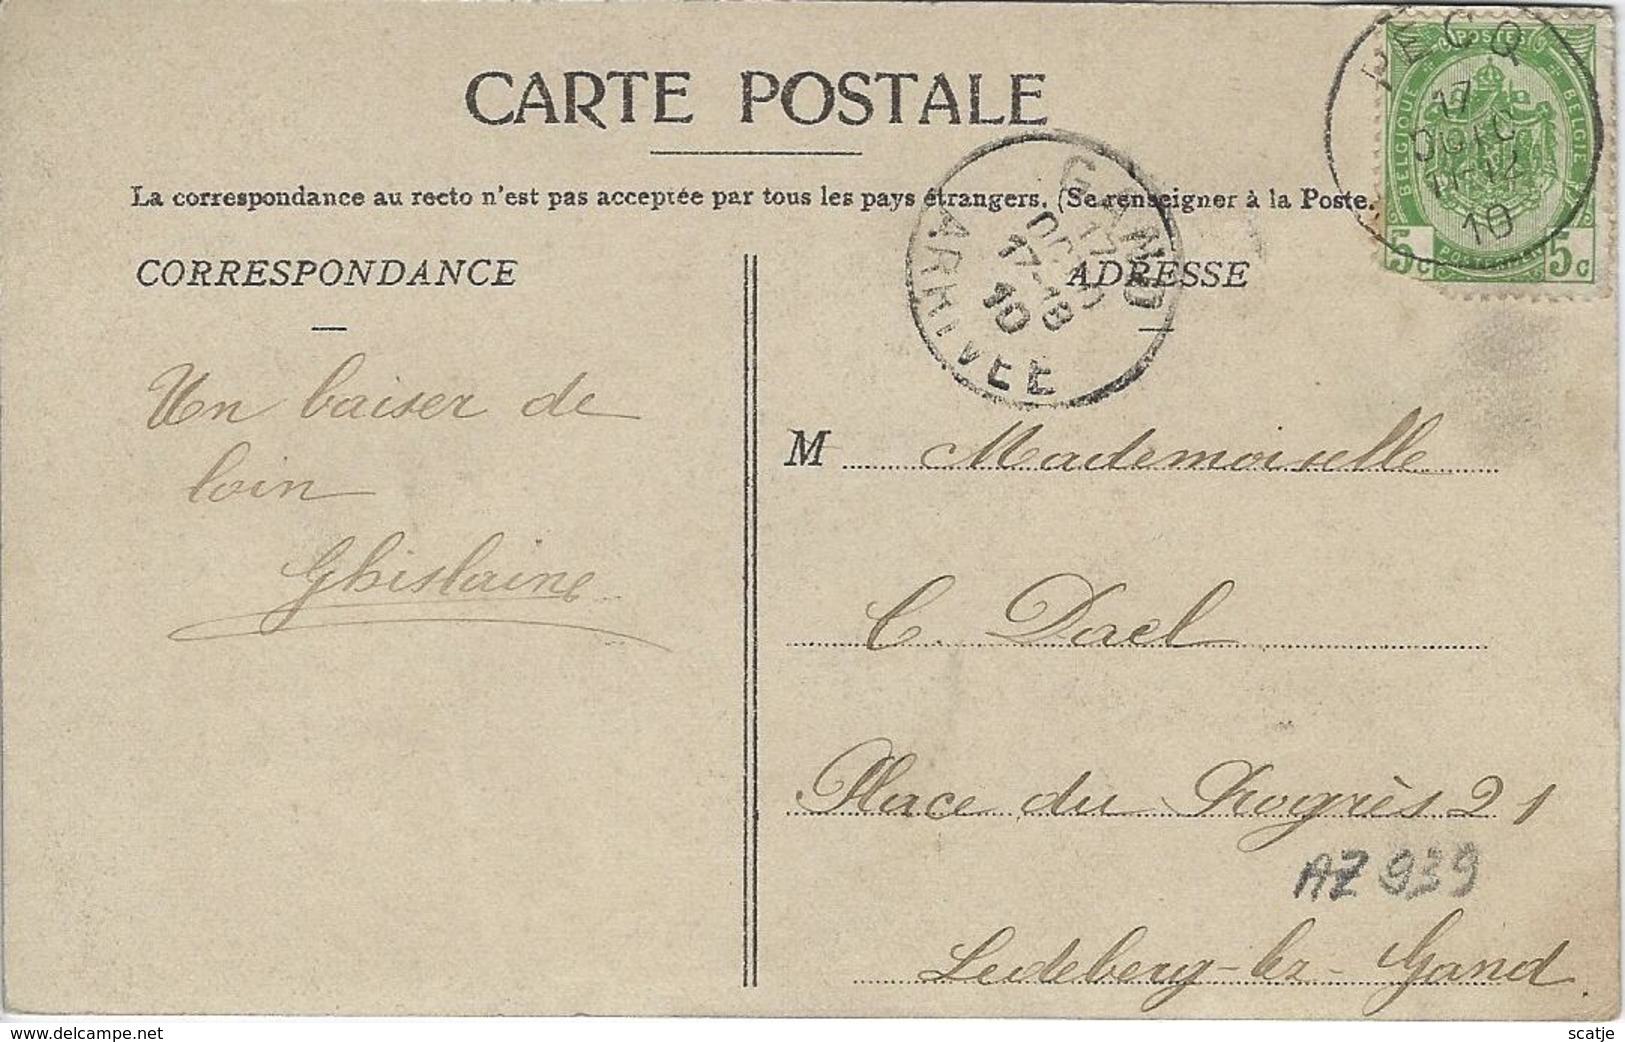 CARTE POSTALE
La correspondance au recto n'est pas acceptée par tous les pays étrangers. (Se renseigner à la Poste.
CORRESPONDANCE
ADRESSE
PECQ
17
11-12
10
POSTES
BELGIQUE
BELGIË
5c
5c
GAND
17
17-18
10
ARRIVEE
Un baiser de
loin
Ghislaine
M Mademoiselle
C. Dael
Place du Progrès 21
AZ 939
Ledeberg-lez-Gand
www.delcampe.net
scatje